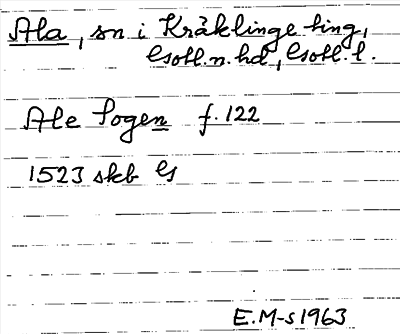 Ala, sn i Kräklinge ting,
Gotl.n.hd, Gotl.l.
Ale Sogen f. 122
1523 skb G
E.M-s 1963